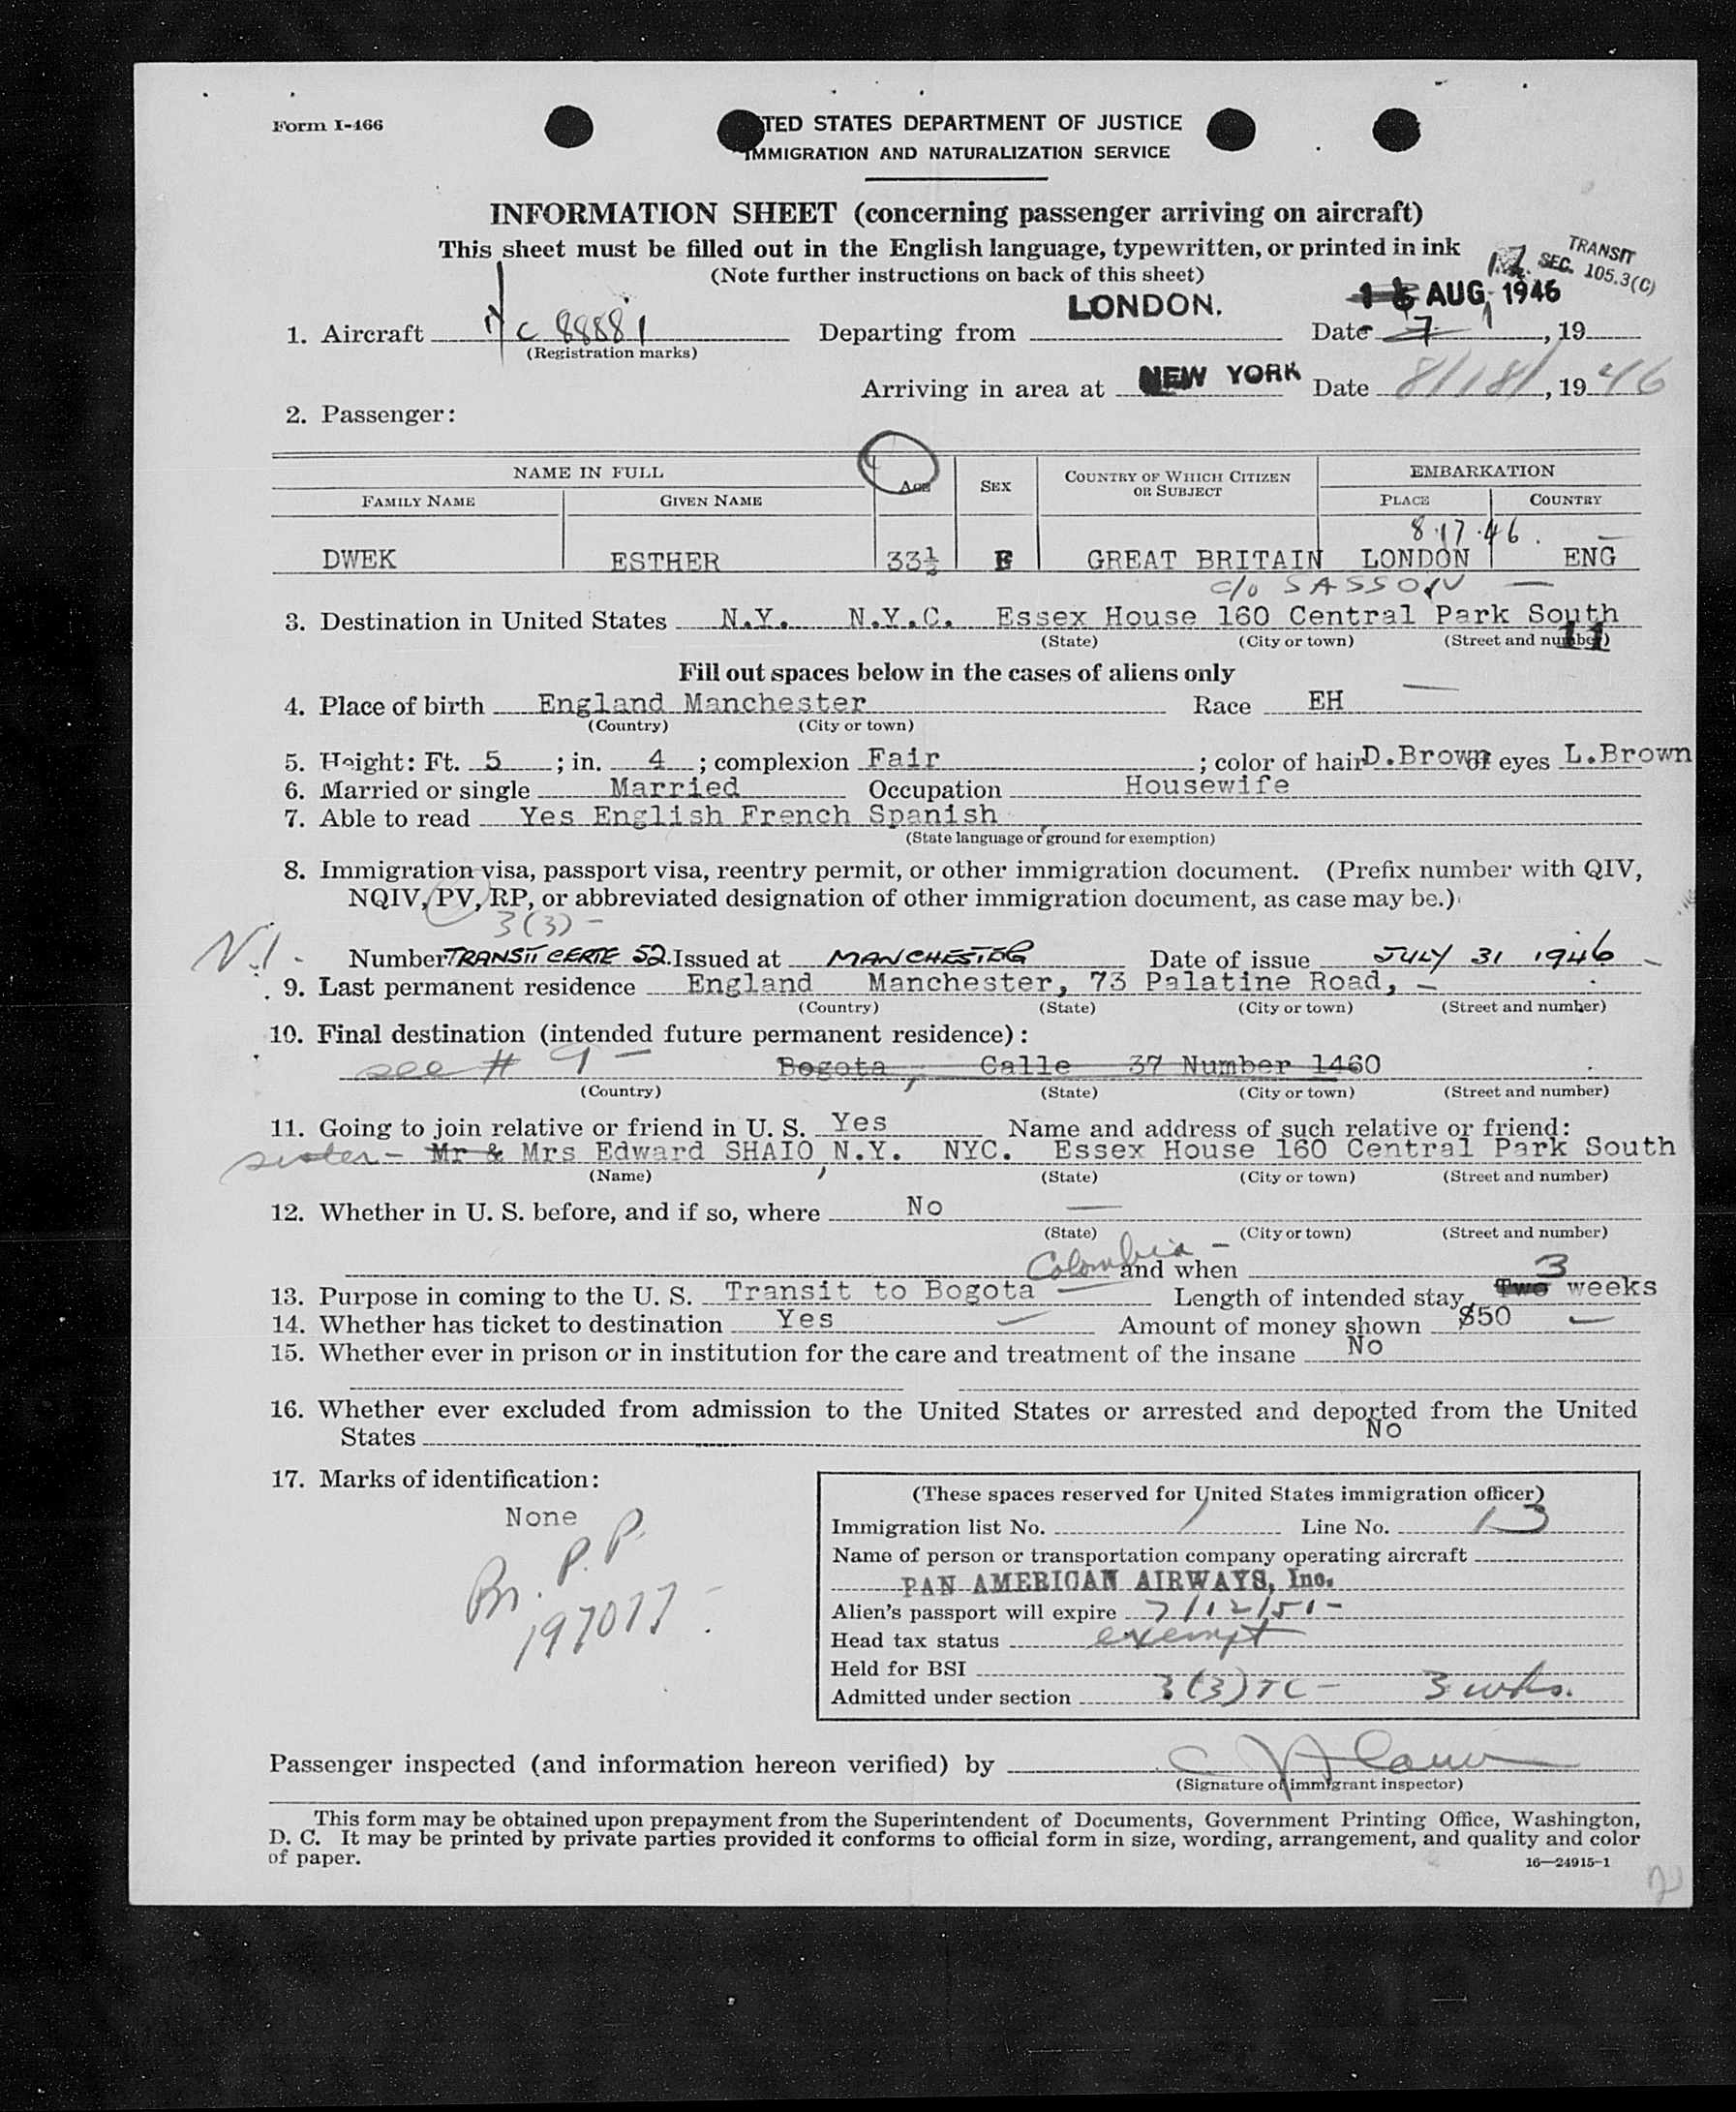 Form I-466
TED STATES DEPARTMENT OF JUSTICE
IMMIGRATION AND NATURALIZATION SERVICE
INFORMATION SHEET (concerning passenger arriving on aircraft)
This sheet must be filled out in the English language, typewritten, or printed in ink
(Note further instructions on back of this sheet)
TRANSIT
SEC. 105.3(C)
1. Aircraft NC 88881 Departing from LONDON. Date AUG 1946, 19
(Registration marks)
Arriving in area at NEW YORK Date 8/18/, 1946
2. Passenger:
NAME IN FULL AGE SEX COUNTRY OF WHICH CITIZEN OR SUBJECT EMBARKATION
FAMILY NAME GIVEN NAME PLACE COUNTRY
8.17.46.
DWEK ESTHER 33½ F GREAT BRITAIN LONDON ENG
c/o SASSON
3. Destination in United States N.Y. N.Y.C. Essex House 160 Central Park South
(State) (City or town) (Street and number)
11
Fill out spaces below in the cases of aliens only
4. Place of birth England Manchester Race EH
(Country) (City or town)
5. Height: Ft. 5; in. 4; complexion Fair; color of hair D.Brown of eyes L.Brown
6. Married or single Married Occupation Housewife
7. Able to read Yes English French Spanish
(State language or ground for exemption)
8. Immigration visa, passport visa, reentry permit, or other immigration document. (Prefix number with QIV,
NQIV, PV, RP, or abbreviated designation of other immigration document, as case may be.)
3(3) -
Number TRANSIT CERTE 52. Issued at MANCHESTER Date of issue JULY 31 1946
9. Last permanent residence England Manchester, 73 Palatine Road,
(Country) (State) (City or town) (Street and number)
10. Final destination (intended future permanent residence):
see # 9 - Bogota, Calle 37 Number 1460
(Country) (State) (City or town) (Street and number)
11. Going to join relative or friend in U. S. Yes Name and address of such relative or friend:
sister - Mr & Mrs Edward SHAIO, N.Y. NYC. Essex House 160 Central Park South
(Name) (State) (City or town) (Street and number)
12. Whether in U. S. before, and if so, where No
(State) (City or town) (Street and number)
and when
13. Purpose in coming to the U. S. Transit to Bogota Colombia - Length of intended stay, Two 3 weeks
14. Whether has ticket to destination Yes Amount of money shown $50
15. Whether ever in prison or in institution for the care and treatment of the insane No
16. Whether ever excluded from admission to the United States or arrested and deported from the United
States No
17. Marks of identification:
None
Br. P.P.
197077
(These spaces reserved for United States immigration officer)
Immigration list No. 1 Line No. 13
Name of person or transportation company operating aircraft
PAN AMERICAN AIRWAYS, Inc.
Alien's passport will expire 7/12/51-
Head tax status exempt
Held for BSI
Admitted under section 3(3) TC- 3 wks.
Passenger inspected (and information hereon verified) by
(Signature of immigrant inspector)
This form may be obtained upon prepayment from the Superintendent of Documents, Government Printing Office, Washington,
D. C. It may be printed by private parties provided it conforms to official form in size, wording, arrangement, and quality and color
of paper.
16—24915-1